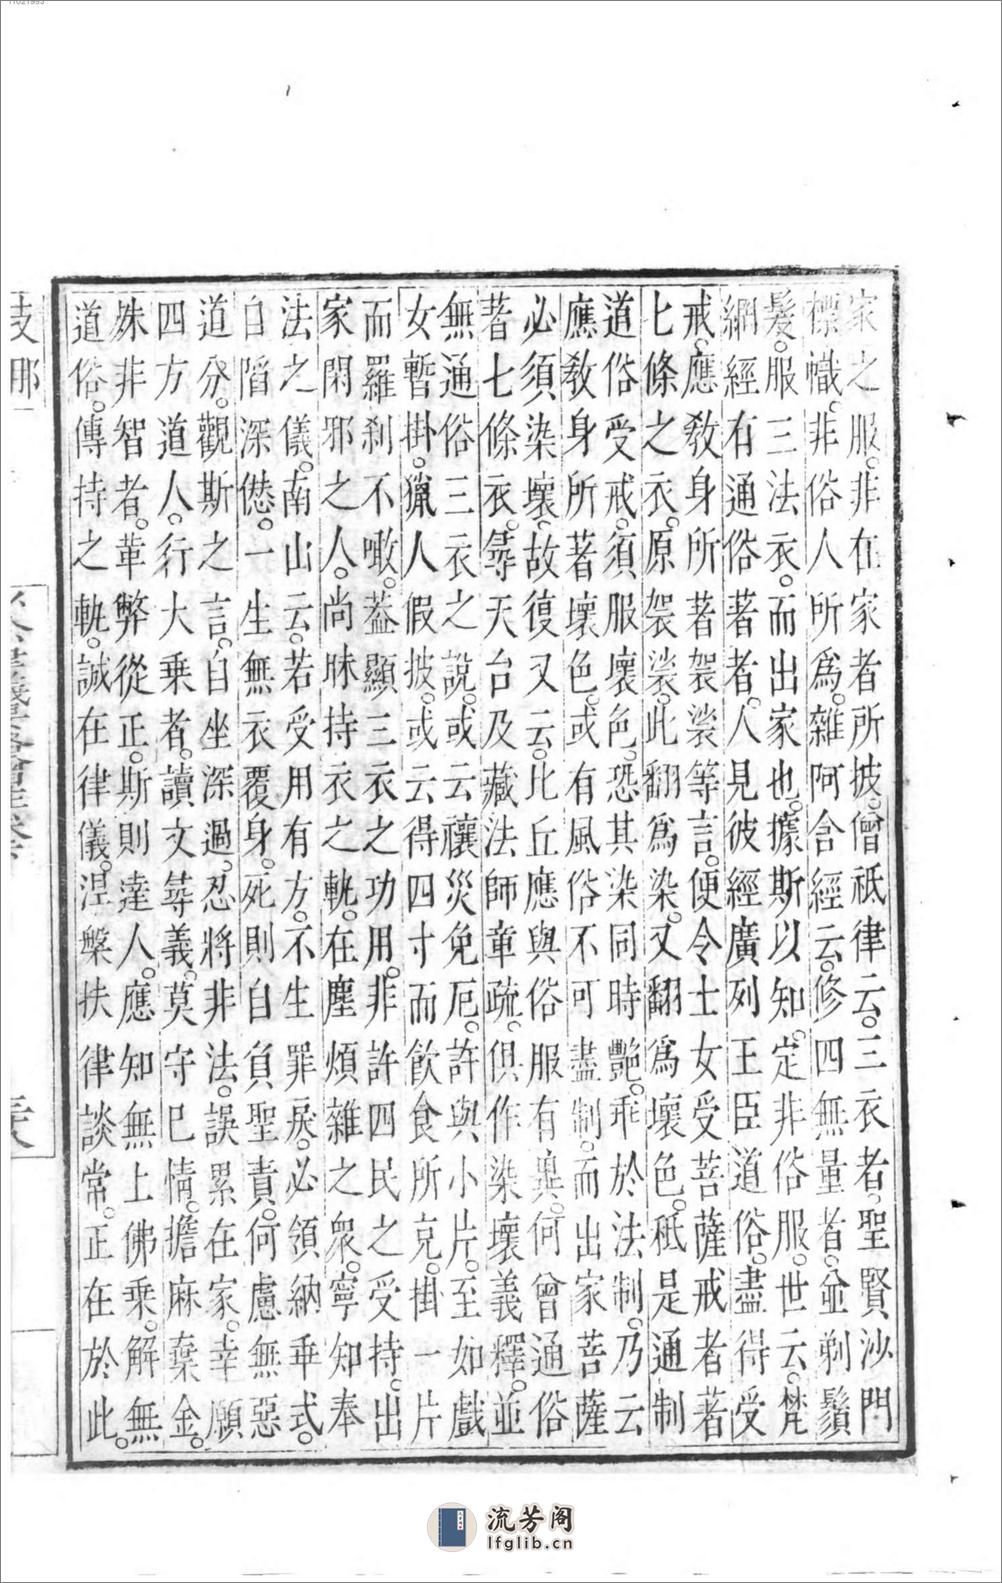 家之服。非在家者所披。僧祇律云。三衣者。聖賢沙門
標幟。非俗人所爲。雜阿含經云。修四無量者。並剃鬚
髮。服三法衣。而出家也。據斯以知。定非俗服。世云。梵
網經有通俗著者。人見彼經廣列王臣道俗。盡得受
戒。應教身所著袈裟等言。便令士女受菩薩戒者著
七條之衣。原袈裟。此翻爲染。又翻爲壞色。秪是通制
道俗受戒。須服壞色。恐其染同時艷。乖於法制。乃云
應教身所著壞色。或有風俗不可盡制。而出家菩薩
必須染壞。故復又云。比丘應與俗服有異。何曾通俗
著七條衣。尋天台及藏法師章疏。俱作染壞義釋。並
無通俗三衣之說。或云禳災免厄。許與小片。至如戲
女暫掛。獵人假披。或云得四寸而飲食所克。掛一片
而羅刹不噉。蓋顯三衣之功用。非許四民之受持。出
家閑邪之人。尚昧持衣之軌。在塵煩雜之衆。寧知奉
法之儀。南山云。若受用有方。不生罪戾。必領納乖式。
自陷深愆。一生無衣覆身。死則自負聖責。何慮無惡
道分。觀斯之言。自坐深過。忍將非法。誤累在家。幸願
四方道人。行大乘者。讀文尋義。莫守巳情。擔麻棄金。
殊非智者。革弊從正。斯則達人。應知無上佛乘。解無
道俗。傳持之軌。誠在律儀。涅槃扶律談常。正在於此。
支那
流芳阁
lfglib.cn
11021993